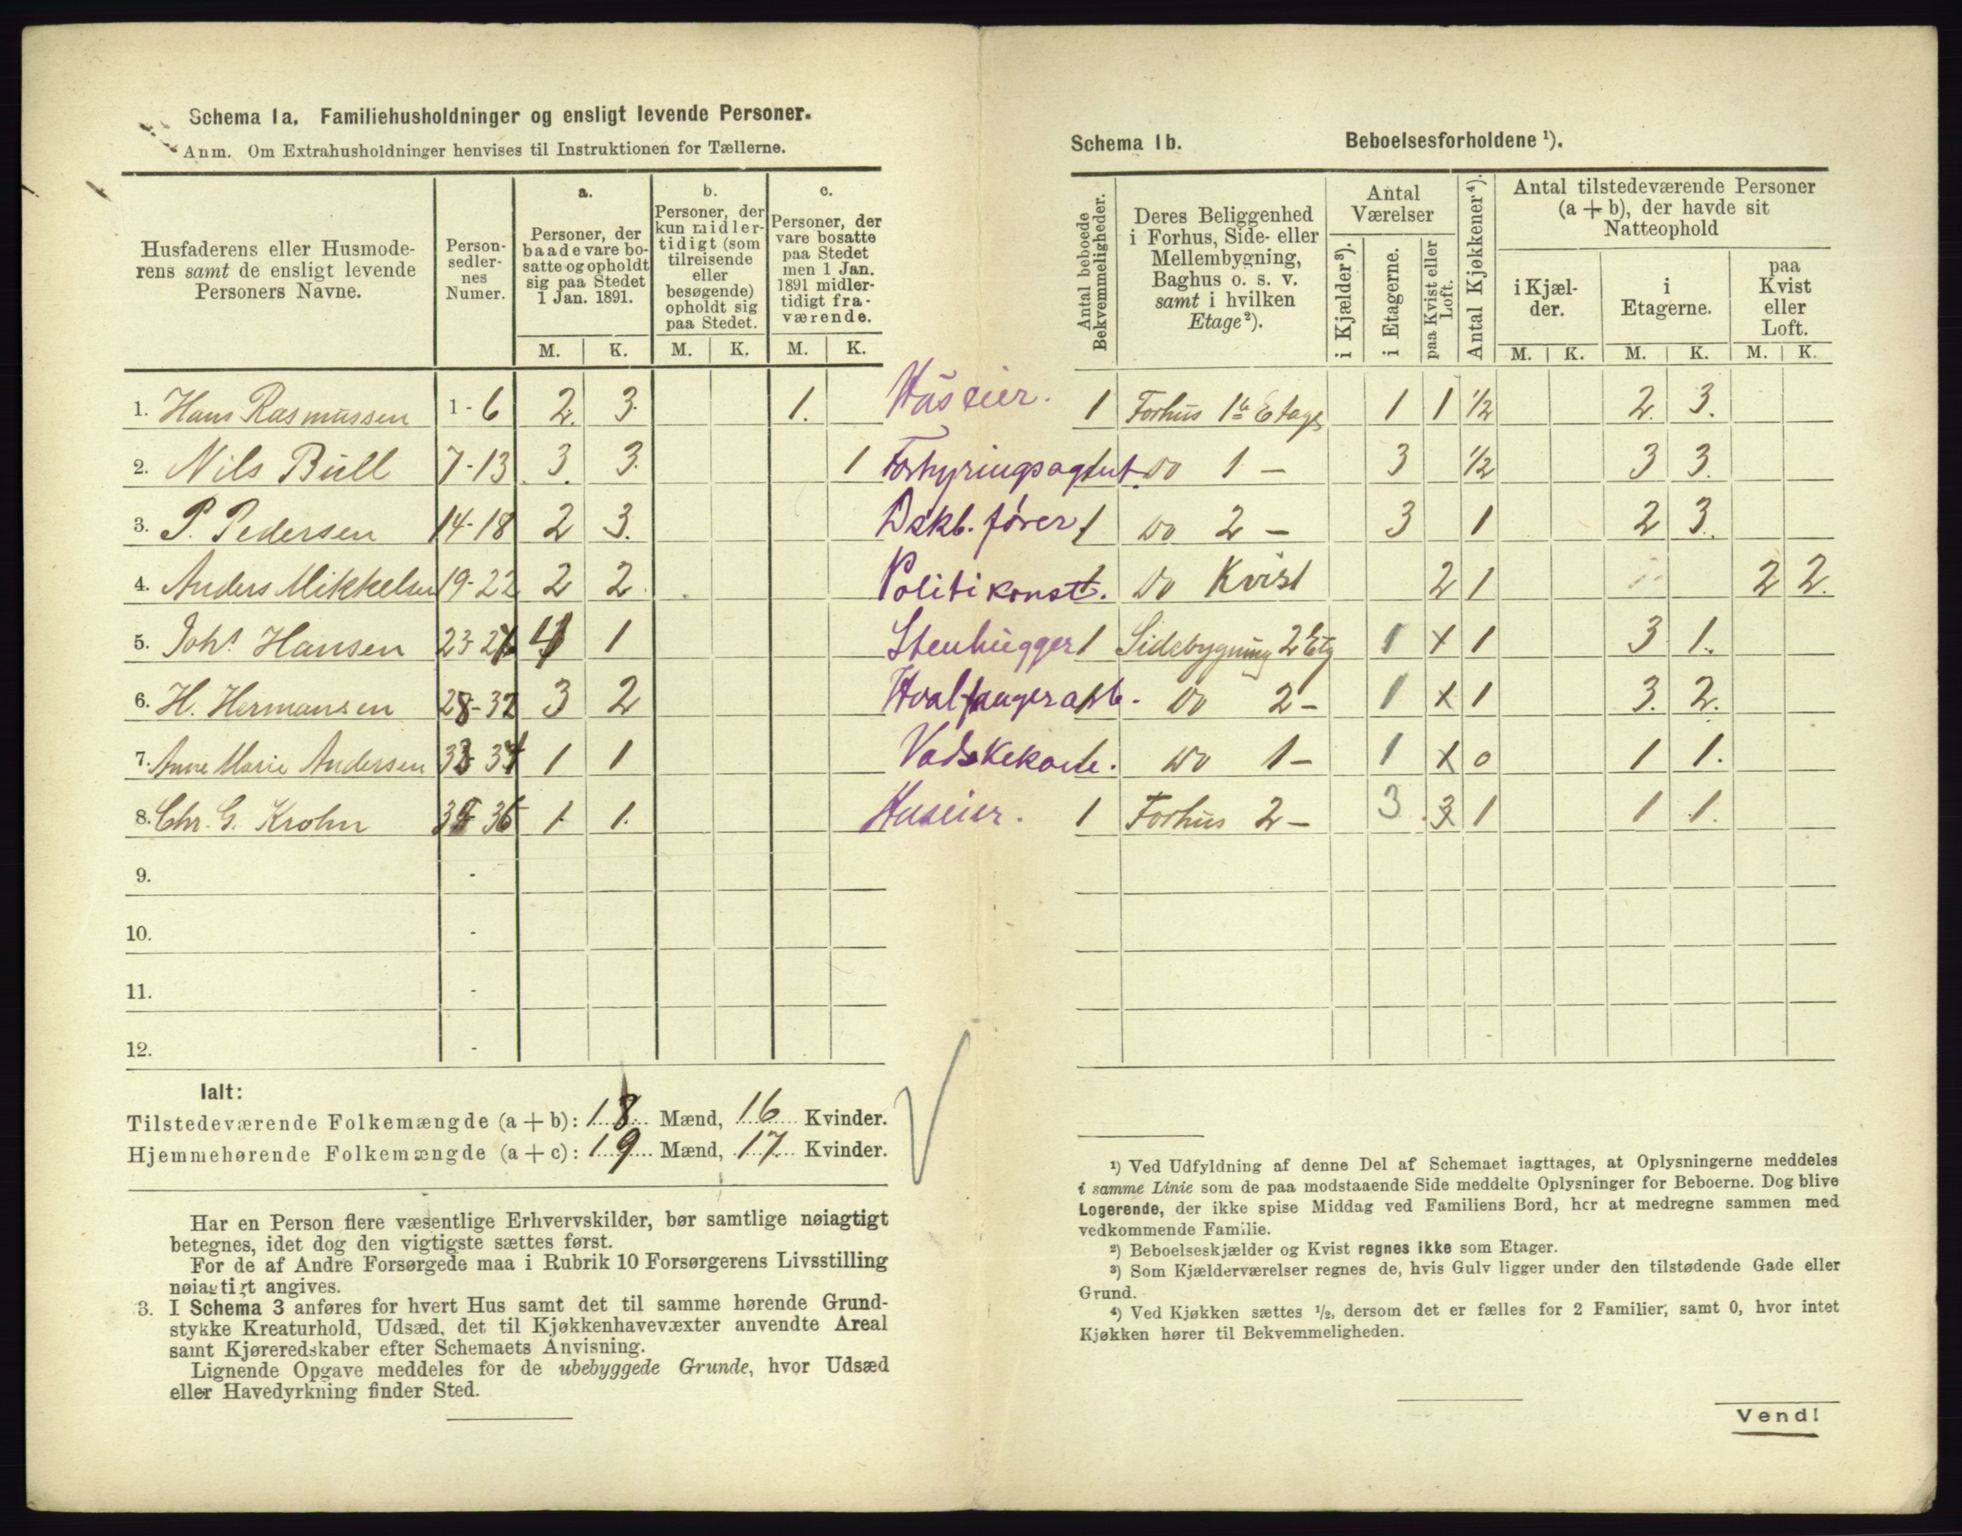 Schema 1a. Familiehusholdninger og ensligt levende Personer.
Anm. Om Extrahusholdninger henvises til Instruktionen for Tællerne.
Husfaderens eller Husmoderens samt de ensligt levende Personers Navne.
Personsedlernes Numer.
a. Personer, der baade vare bosatte og opholdt sig paa Stedet 1 Jan. 1891.
b. Personer, der kun midlertidigt (som tilreisende eller besøgende) opholdt sig paa Stedet.
c. Personer, der vare bosatte paa Stedet men 1 Jan. 1891 midlertidigt fraværende.
M. K. M. K. M. K.
1. Hans Rasmussen 1-6 2. 3. 1. Huseier.
2. Nils Bull 7-13 3. 3. 1 Forhyringsagent.
3. P. Pedersen 14-18 2 3. Dskb. fører
4. Anders Mikkelsen 19-22 2 2 Politikonst.
5. Johs Hansen 23- 1 Stenhugger
6. H. Hermansen 28-32 3 2 Hvalfangerarb.
7. Anne Marie Andersen 33-34 1 1 Vadskekone.
8. Chr. G. Krohn 35-36 1. 1. Huseier.
9. -
10. -
11. -
12. -
Ialt:
Tilstedeværende Folkemængde (a + b): 18 Mænd, 16 Kvinder.
Hjemmehørende Folkemængde (a + c): 19 Mænd, 17 Kvinder.
Har en Person flere væsentlige Erhvervskilder, bør samtlige nøiagtigt
betegnes, idet dog den vigtigste sættes først.
For de af Andre Forsørgede maa i Rubrik 10 Forsørgerens Livsstilling
nøiagtigt angives.
3. I Schema 3 anføres for hvert Hus samt det til samme hørende Grund-
stykke Kreaturhold, Udsæd, det til Kjøkkenhavevæxter anvendte Areal
samt Kjøreredskaber efter Schemaets Anvisning.
Lignende Opgave meddeles for de ubebyggede Grunde, hvor Udsæd
eller Havedyrkning finder Sted.
Schema 1b. Beboelsesforholdene ¹).
Antal beboede Bekvemmeligheder.
Deres Beliggenhed i Forhus, Side- eller Mellembygning, Baghus o. s. v. samt i hvilken Etage²).
Antal Værelser
i Kjælder³).
i Etagerne.
paa Kvist eller Loft.
Antal Kjøkkener⁴).
Antal tilstedeværende Personer (a + b), der havde sit Natteophold
i Kjælder.
i Etagerne.
paa Kvist eller Loft.
M. K. M. K. M. K.
1 Forhus 1te Etage 1 1 ½ 2. 3.
1 do 1 - 3 ½ 3 3.
1 do 2 - 3 1 2 3.
1 do Kvist 2 1 2 2.
1 Sidebygning 2 Etg 1 x 1 3 1.
1 do 2 - 1 x 1 3. 2.
1 do 1 - 1 x 0 1 1.
1 Forhus 2 - 3 3 1 1 1.
¹) Ved Udfyldning af denne Del af Schemaet iagttages, at Oplysningerne meddeles
i samme Linie som de paa modstaaende Side meddelte Oplysninger for Beboerne. Dog blive
Logerende, der ikke spise Middag ved Familiens Bord, her at medregne sammen med
vedkommende Familie.
²) Beboelseskjælder og Kvist regnes ikke som Etager.
³) Som Kjælderværelser regnes de, hvis Gulv ligger under den tilstødende Gade eller
Grund.
⁴) Ved Kjøkken sættes ½, dersom det er fælles for 2 Familier, samt 0, hvor intet
Kjøkken hører til Bekvemmeligheden.
Vend!